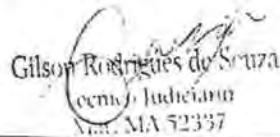 Gilson Rodrigues de Souza
Técnico Judiciário
Mat. MA 52337